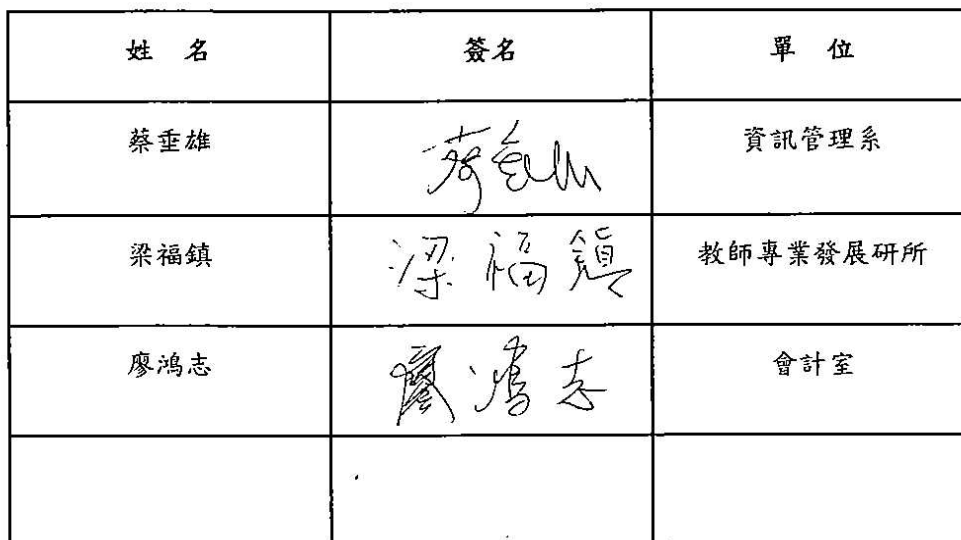 姓 名 簽名 單 位
蔡垂雄 資訊管理系
梁福鎮 梁福鎮 教師專業發展研所
廖鴻志 廖鴻志 會計室